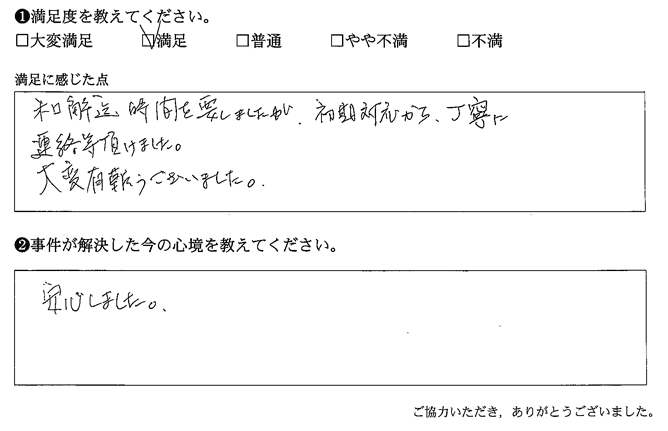 ❶満足度を教えてください。
□大変満足 ☑満足 □普通 □やや不満 □不満
満足に感じた点
和解迄時間を要しましたが、初期対応から、丁寧に
連絡等頂けました。
大変有難うございました。
❷事件が解決した今の心境を教えてください。
安心しました。
ご協力いただき，ありがとうございました。